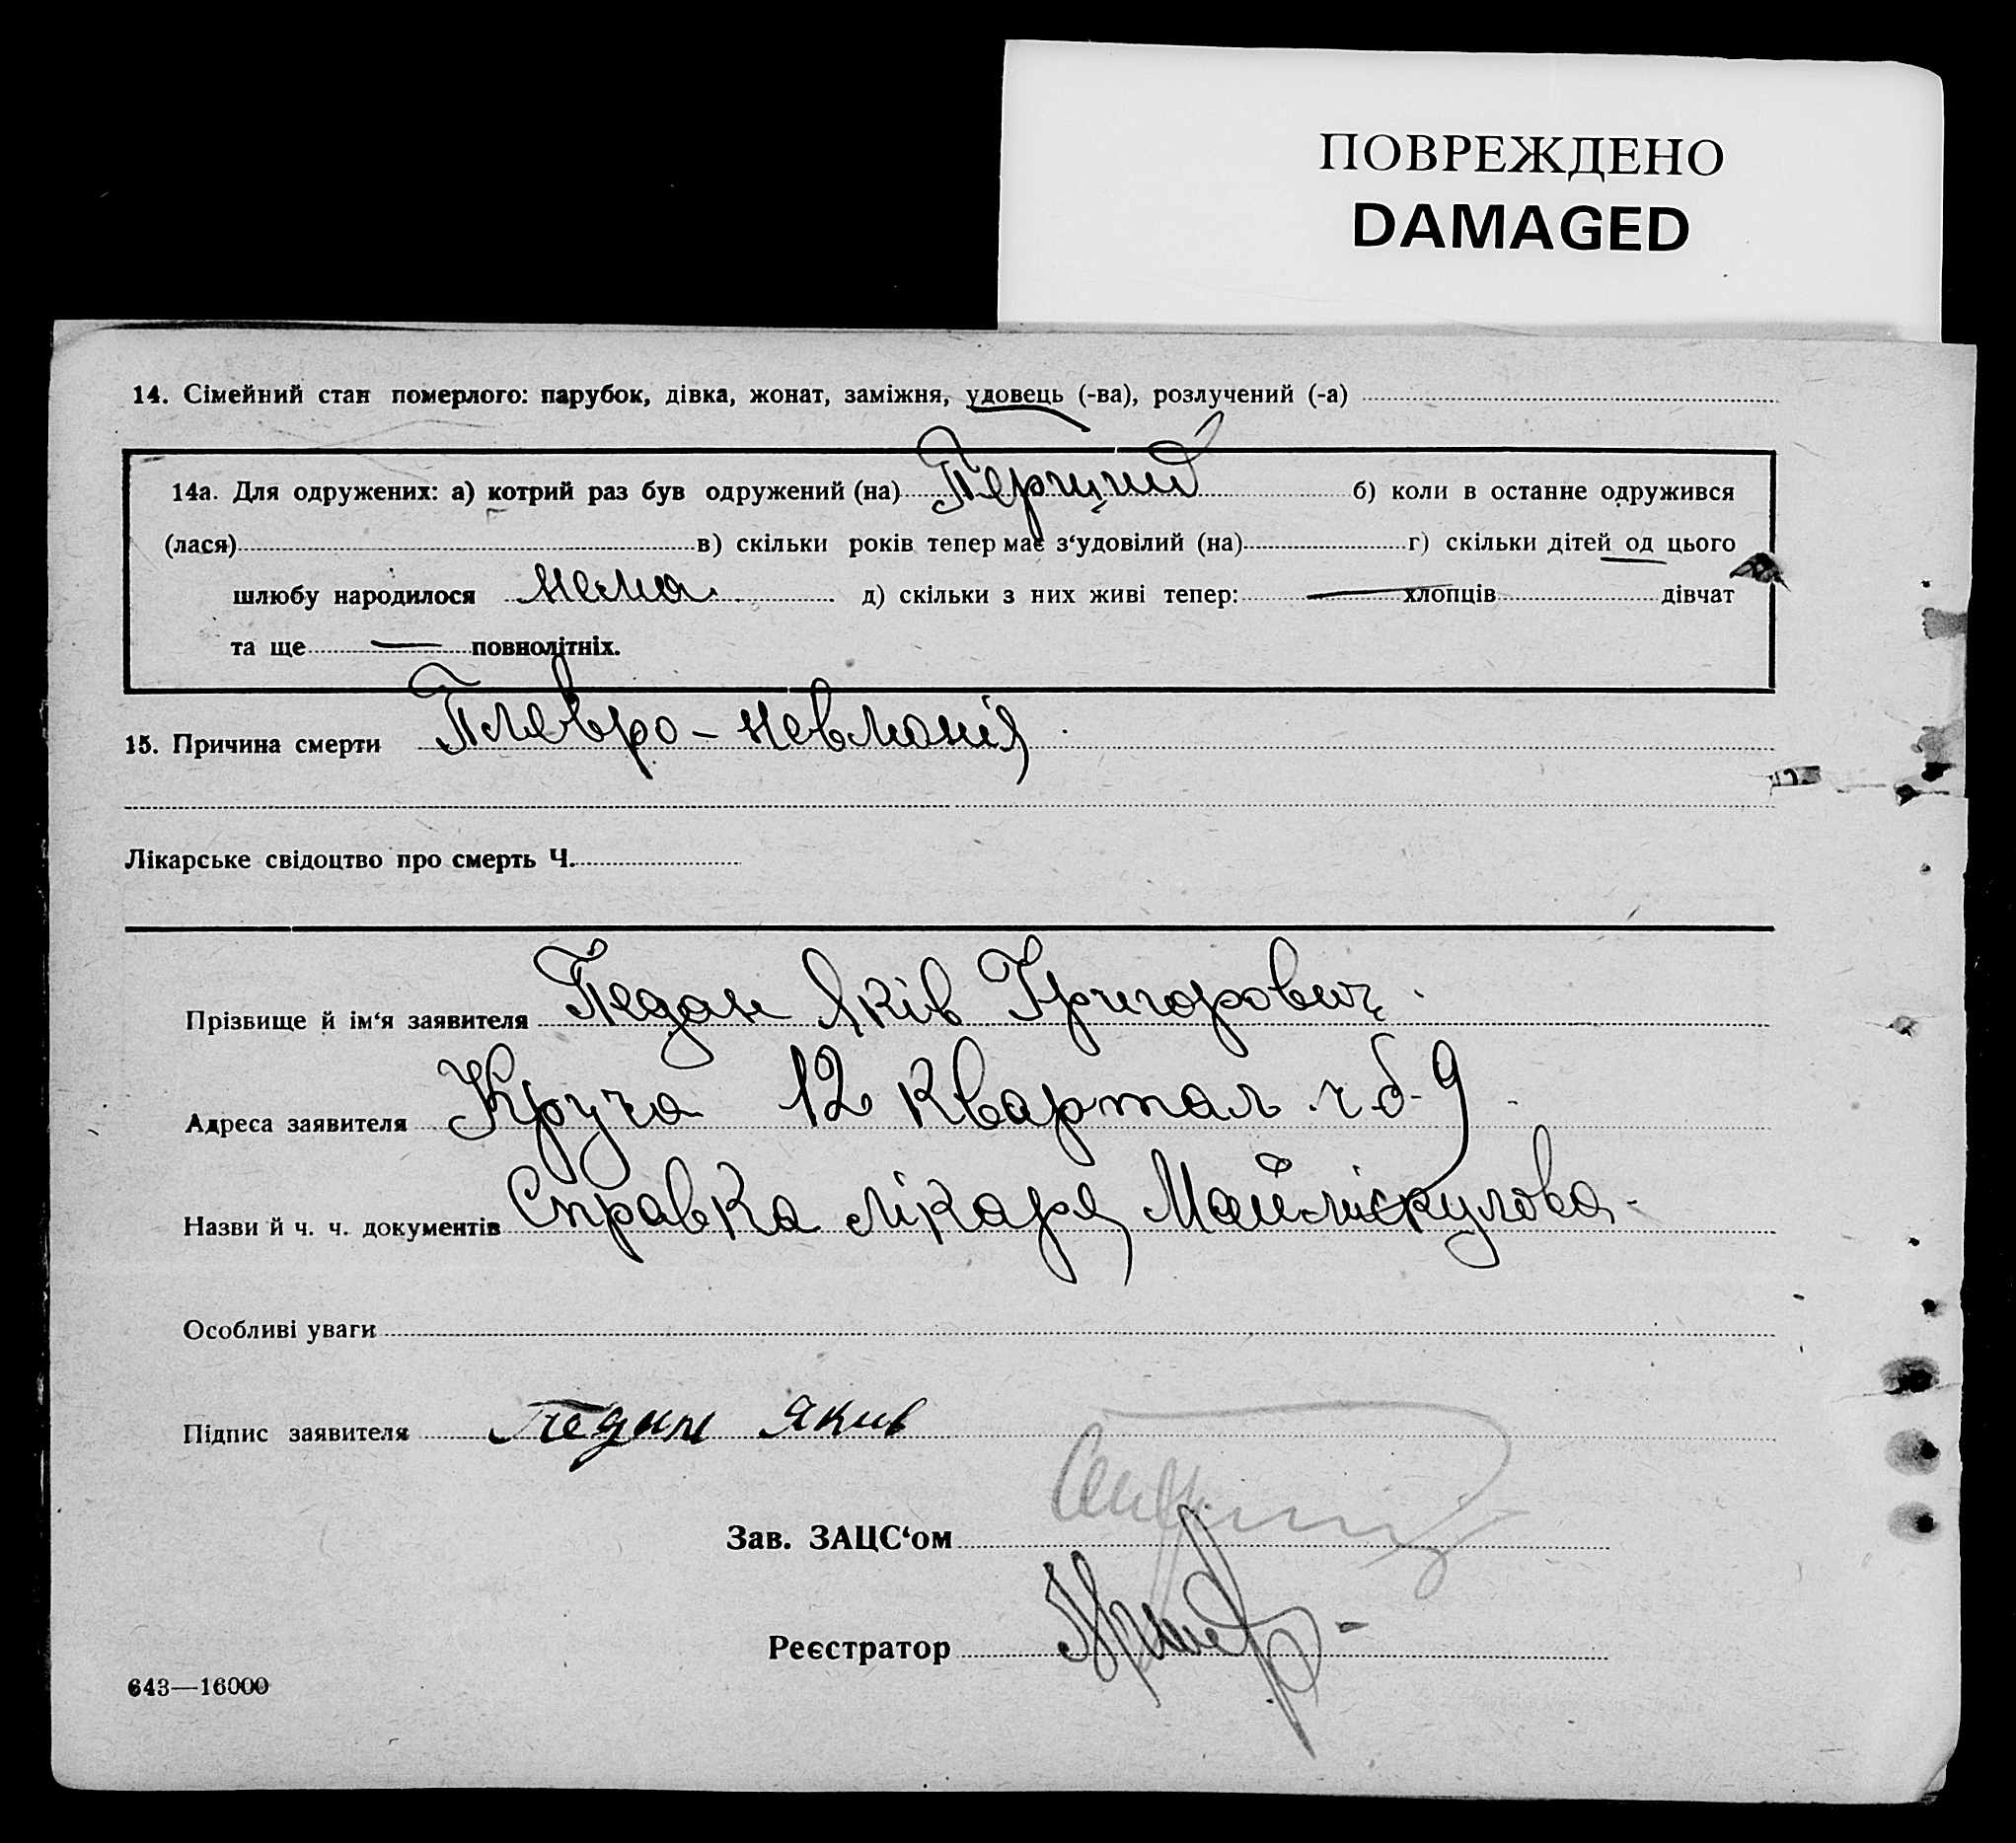 ПОВРЕЖДЕНО
DAMAGED
14. Сімейний стан померлого: парубок, дівка, жонат, заміжня, удовець (-ва), розлучений (-а)
14а. Для одружених: а) котрий раз був одружений (на) Перший б) коли в останне одружився
(лася) в) скільки років тепер має з‘удовілий (на) г) скільки дітей од цього
шлюбу народилося нема д) скільки з них живі тепер: — хлопців дівчат
та ще — повнолітніх.
15. Причина смерти Плевро-невмонія
Лікарське свідоцтво про смерть Ч.
Прізвище й ім‘я заявителя Педан Яків Григорович.
Адреса заявителя Круча 12 квартал ч.б-9
Назви й ч. ч. документів Справка лікаря
Особливі уваги
Підпис заявителя Педан Якив
Зав. ЗАЦС‘ом
Реєстратор
643—16000